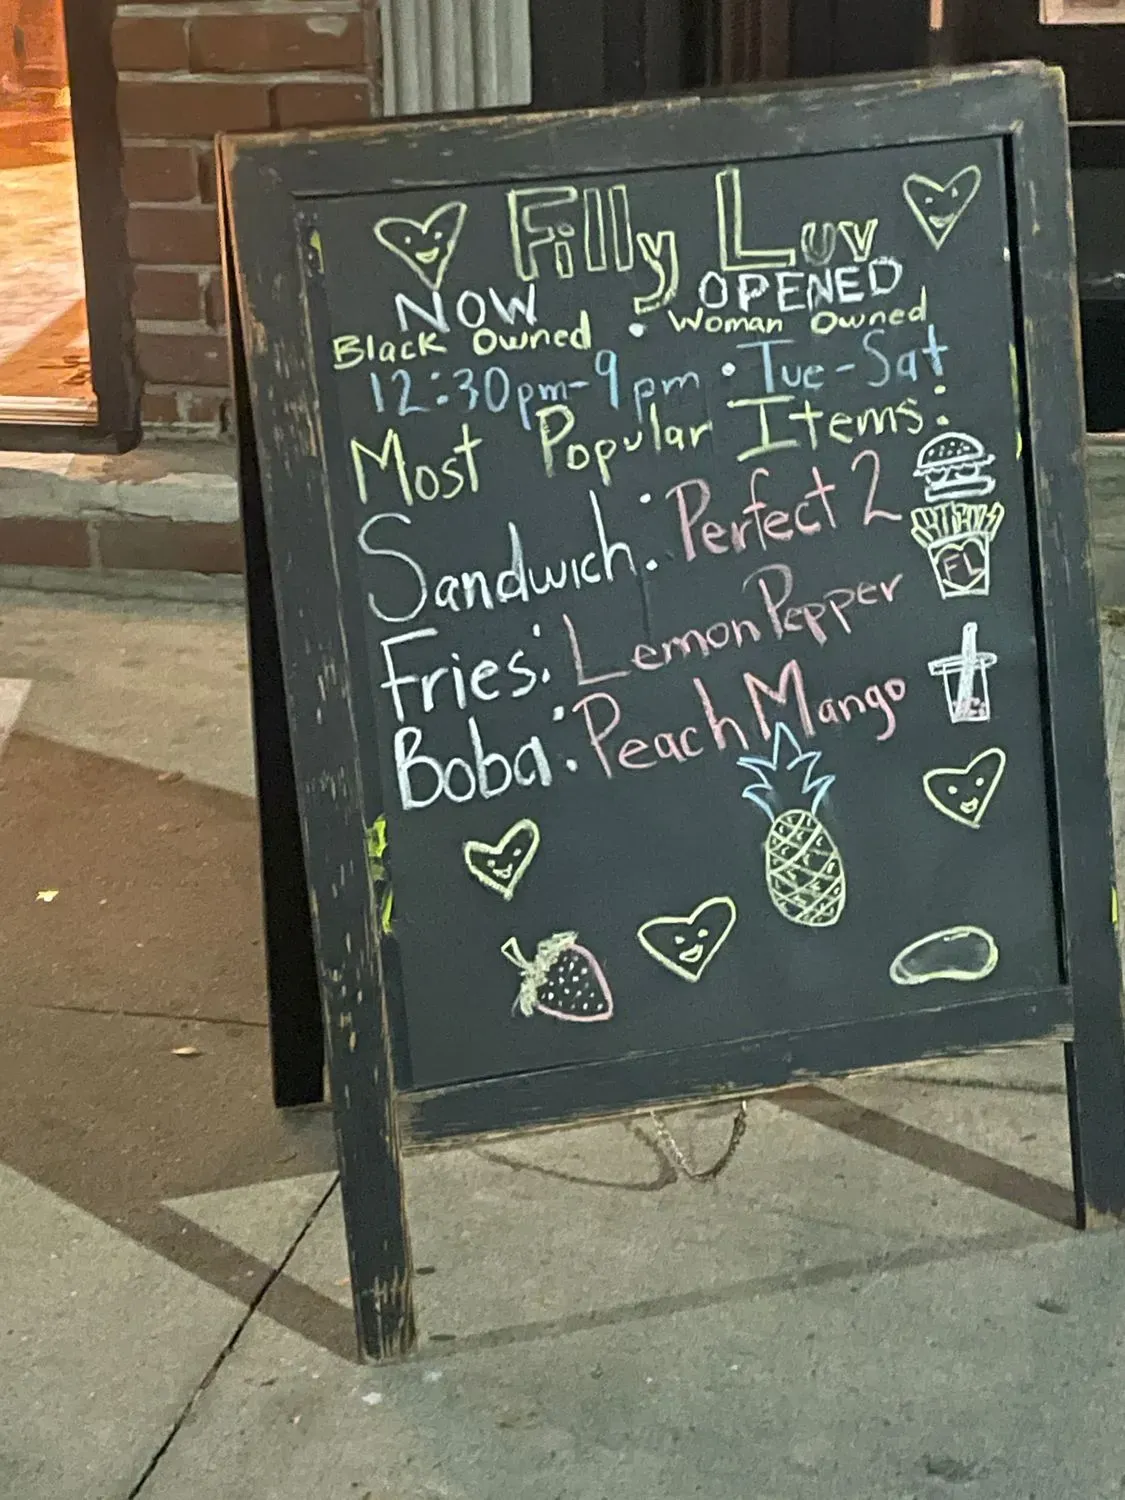 Filly Luv
NOW OPENED
Black Owned • Woman Owned
12:30pm-9pm • Tue-Sat
Most Popular Items:
Sandwich: Perfect 2
Fries: Lemon Pepper
FL
Boba: Peach Mango